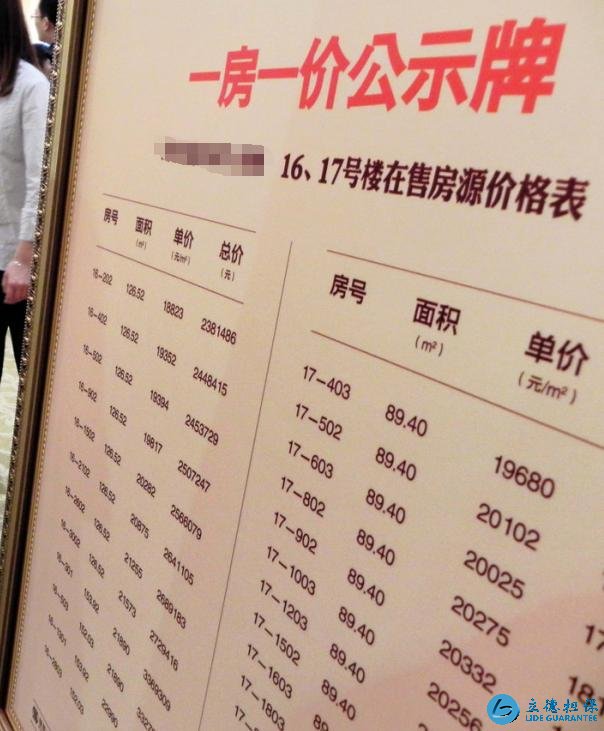 一房一价公示牌
16、17号楼在售房源价格表
房号 面积 单价 总价
(㎡) (元/㎡) (元)
16-202 126.52 18823 2381486
16-402 126.52 19352 2448415
16-502 126.52 19394 2453729
16-902 126.52 19817 2507247
16-1502 126.52 20282 2566079
16-2102 126.52 20875 2641105
16-2602 126.52 21255 2689183
16-3002 126.52 21573 2729416
16-301 153.92 21890 3369309
16-503 152.03 21890
16-1901 153.92
16-2803 152.03
房号 面积 单价
(㎡) (元/㎡)
17-403 89.40 19680
17-502 89.40 20102
17-603 89.40 20025
17-802 89.40 20275
17-902 89.40 20332
17-1003 89.40 20256
17-1203 89.40
17-1502 89.40
17-1603 89.40
17-1803
立德担保
LIDE GUARANTEE